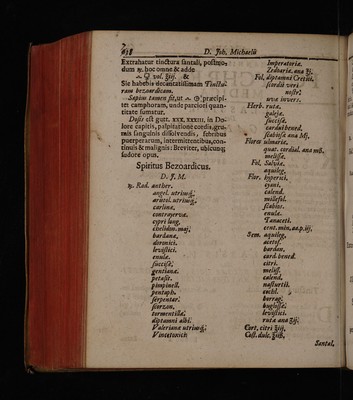 638 D. Joh. Michaelis
Extrahatur tinctura santali, postmodum
℞. hoc omne & adde
vol. ʒiij. &
Sic habebis decantatissimam Tincturam
bezoardicam.
Sapius tamen fit, ut præcipitet
camphoram, unde parciori quantitate
sumatur.
Dosis est gutt. XXX. XXXIII. in Dolore
capitis, palpitatione cordis, grumis
sanguinis dissolvendis, febribus
puerperarum, intermittentibus, continuis
& malignis: Breviter, ubicunq;
sudore opus.
Spiritus Bezoardicus.
D. J. M.
℞. Rad. anther.
angel. utriusq;
aristol. utriusq;
carlinæ,
contrayervæ
cypri long.
chelidon. maj;
bardanæ,
doronici.
levistici.
enulæ.
succisæ;
gentianæ.
petasit.
pimpinell.
pentaph.
serpentar.
scorzon.
tormentillæ.
diptamni albi.
Valeriana utriusq;
Vincetoxici
Imperatoriæ.
Zedoariæ. ana ʒj.
Fol. diptamni Cretici.
scordii veri
nostr.
uvæ invers.
Herb. ruta.
galegæ.
succisæ.
cardui bened.
scabiosæ ana Mj.
Flores ulmariæ.
quat. cordial. ana mß.
melissæ.
Fol. Salviæ.
aquileg.
Flor. hyperici.
cyani.
calend.
millefol.
scabios.
enulæ.
Tanaceti.
cent. min. aa. p. iij.
Sem. aquileg.
acetos.
bardan.
card. bened.
citri.
meliss.
calend.
nasturtii.
cochl.
borrag;
buglossæ;
levistici.
rutæ ana ʒij.
Cort. citri ʒiij.
Cast. dulc. ʒiiß.
Santal.